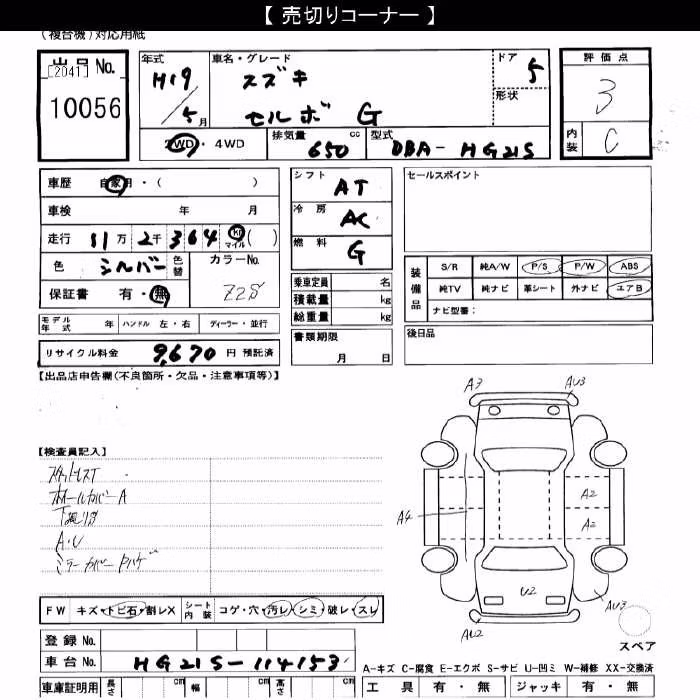 【 売切りコーナー 】
(複合機)対応用紙
出品 No. [2041] 10056
年式 H19/5月
車名・グレード スズキ セルボ G
ドア 5
形状
評価点 3
内装 C
2WD・4WD
排気量 650 cc
型式 DBA- HG21S
車歴 自家用・( )
車検 年 月
走行 11万2千364 km マイル ( )
色 シルバー 色替
カラーNo. Z2S
保証書 有・無
シフト AT
冷房 AC
燃料 G
乗車定員 名
積載量 kg
総重量 kg
セールスポイント
装備品
S/R 純A/W P/S P/W ABS
純TV 純ナビ 革シート 外ナビ エアB
ナビ型番:
モデル年式 年 ハンドル 左・右 ディーラー・並行
リサイクル料金 9,670 円 預託済
書類期限 月 日
後日品
【出品店申告欄(不良箇所・欠品・注意事項等)】
【検査員記入】
ホイールカバーA
下廻りサビ
A・U
ミラーカバーPハゲ
A3
AU3
A4
A2
A2
U2
AU2
AU3
スペア
FW キズ・トビ石・割レX
シート内装 コゲ・穴・汚レ・シミ・破レ・スレ
登録 No.
車台 No. HG21S-114153
A-キズ C-腐食 E-エクボ S-サビ U-凹ミ W-補修 XX-交換済
車庫証明用 長さ cm 幅 cm 高さ cm
工具 有・無 ジャッキ 有・無